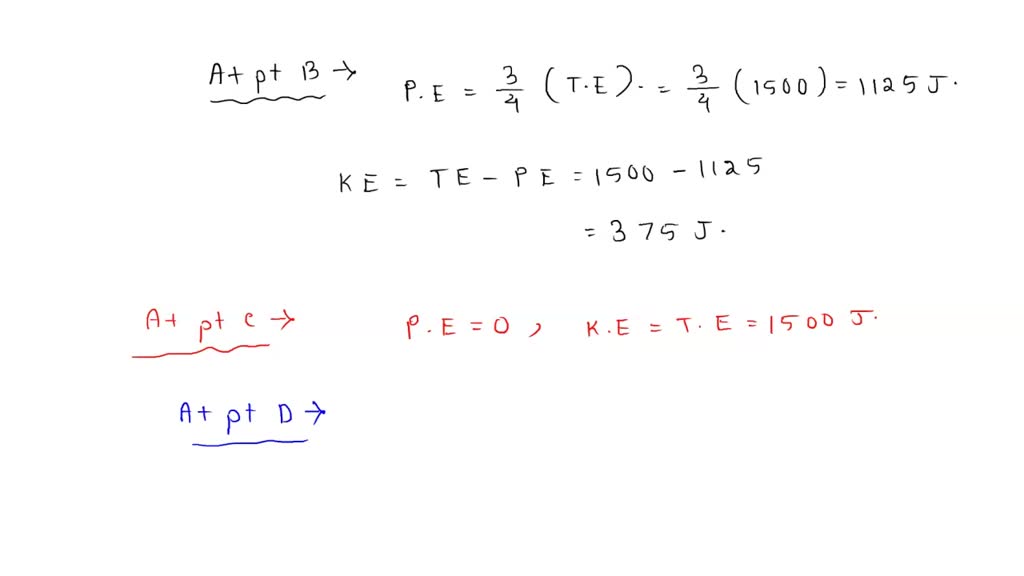 At pt B → P.E = 3/4 (T.E). = 3/4 (1500) = 1125 J.
KE = TE - PE = 1500 - 1125
= 375 J.
At pt C → P.E = 0, K.E = T.E = 1500 J.
At pt D →